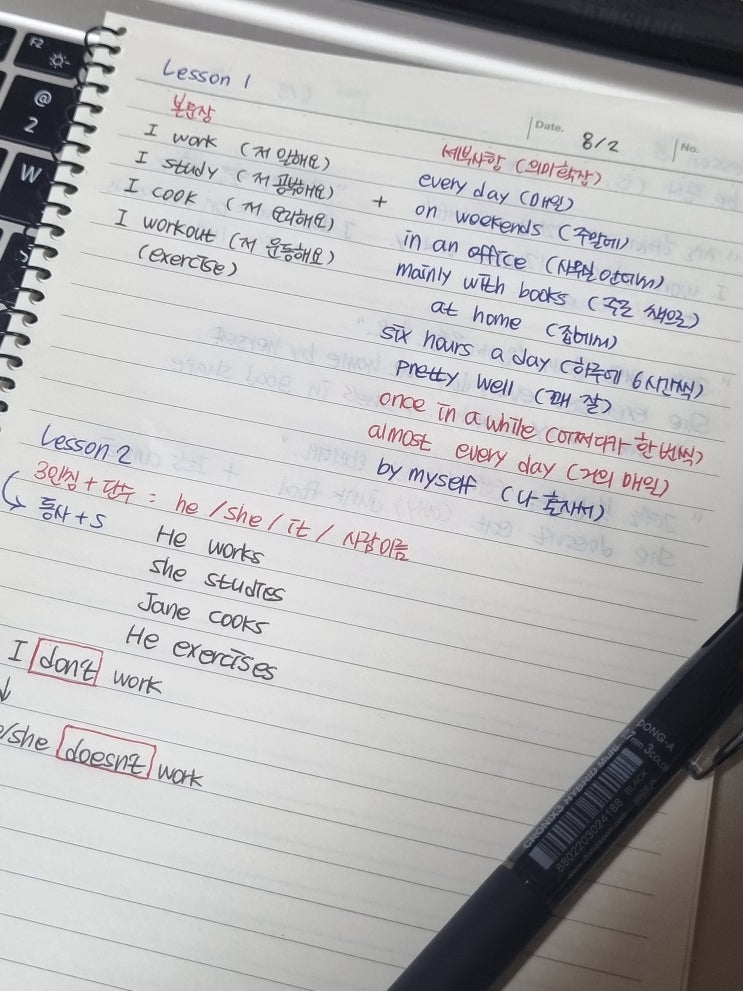 SAMSUNG
F2
@
2
W
Lesson 1
Date. 8/2 No.
본문장
I work (저 일해요)
I study (저 공부해요)
I cook (저 요리해요)
I workout (저 운동해요)
(exercise)
+
세부사항 (의미확장)
every day (매일)
on weekends (주말에)
in an office (사무실 안에서)
mainly with books (주로 책으로)
at home (집에서)
six hours a day (하루에 6시간씩)
pretty well (꽤 잘)
once in a while (어쩌다가 한번씩)
almost every day (거의 매일)
by myself (나 혼자서)
Lesson 2
3인칭 + 단수 : he /she / it / 사람이름
→ 동사 + s
He works
she studies
Jane cooks
He exercises
I don't work
↓
/she doesn't work
DONG-A
7mm 3COLOR
CRONIX3 HYBRID MINI
BLACK